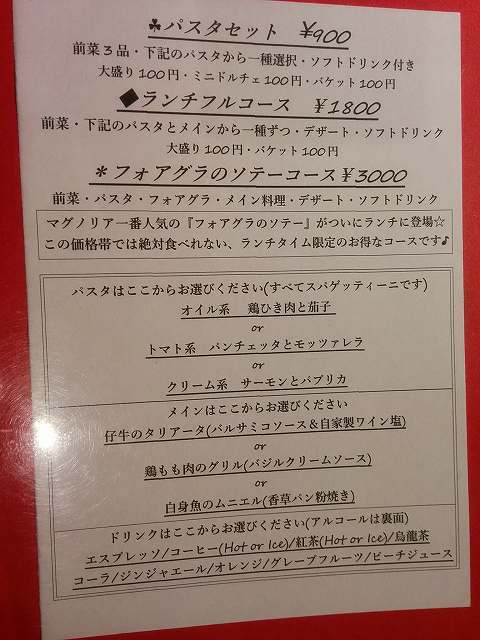 ☘パスタセット ¥900
前菜3品・下記のパスタから一種選択・ソフトドリンク付き
大盛り100円・ミニドルチェ100円・バケット100円
◆ランチフルコース ¥1800
前菜・下記のパスタとメインから一種ずつ・デザート・ソフトドリンク
大盛り100円・バケット100円
＊フォアグラのソテーコース¥3000
前菜・パスタ・フォアグラ・メイン料理・デザート・ソフトドリンク
マグノリア一番人気の『フォアグラのソテー』がついにランチに登場☆
この価格帯では絶対食べれない、ランチタイム限定のお得なコースです♪
パスタはここからお選びください(すべてスパゲッティーニです)
オイル系 鶏ひき肉と茄子
or
トマト系 パンチェッタとモッツァレラ
or
クリーム系 サーモンとパプリカ
メインはここからお選びください
仔牛のタリアータ(バルサミコソース＆自家製ワイン塩)
or
鶏もも肉のグリル(バジルクリームソース)
or
白身魚のムニエル(香草パン粉焼き)
ドリンクはここからお選びください(アルコールは裏面)
エスプレッソ/コーヒー(Hot or Ice)/紅茶(Hot or Ice)/烏龍茶
コーラ/ジンジャエール/オレンジ/グレープフルーツ/ピーチジュース